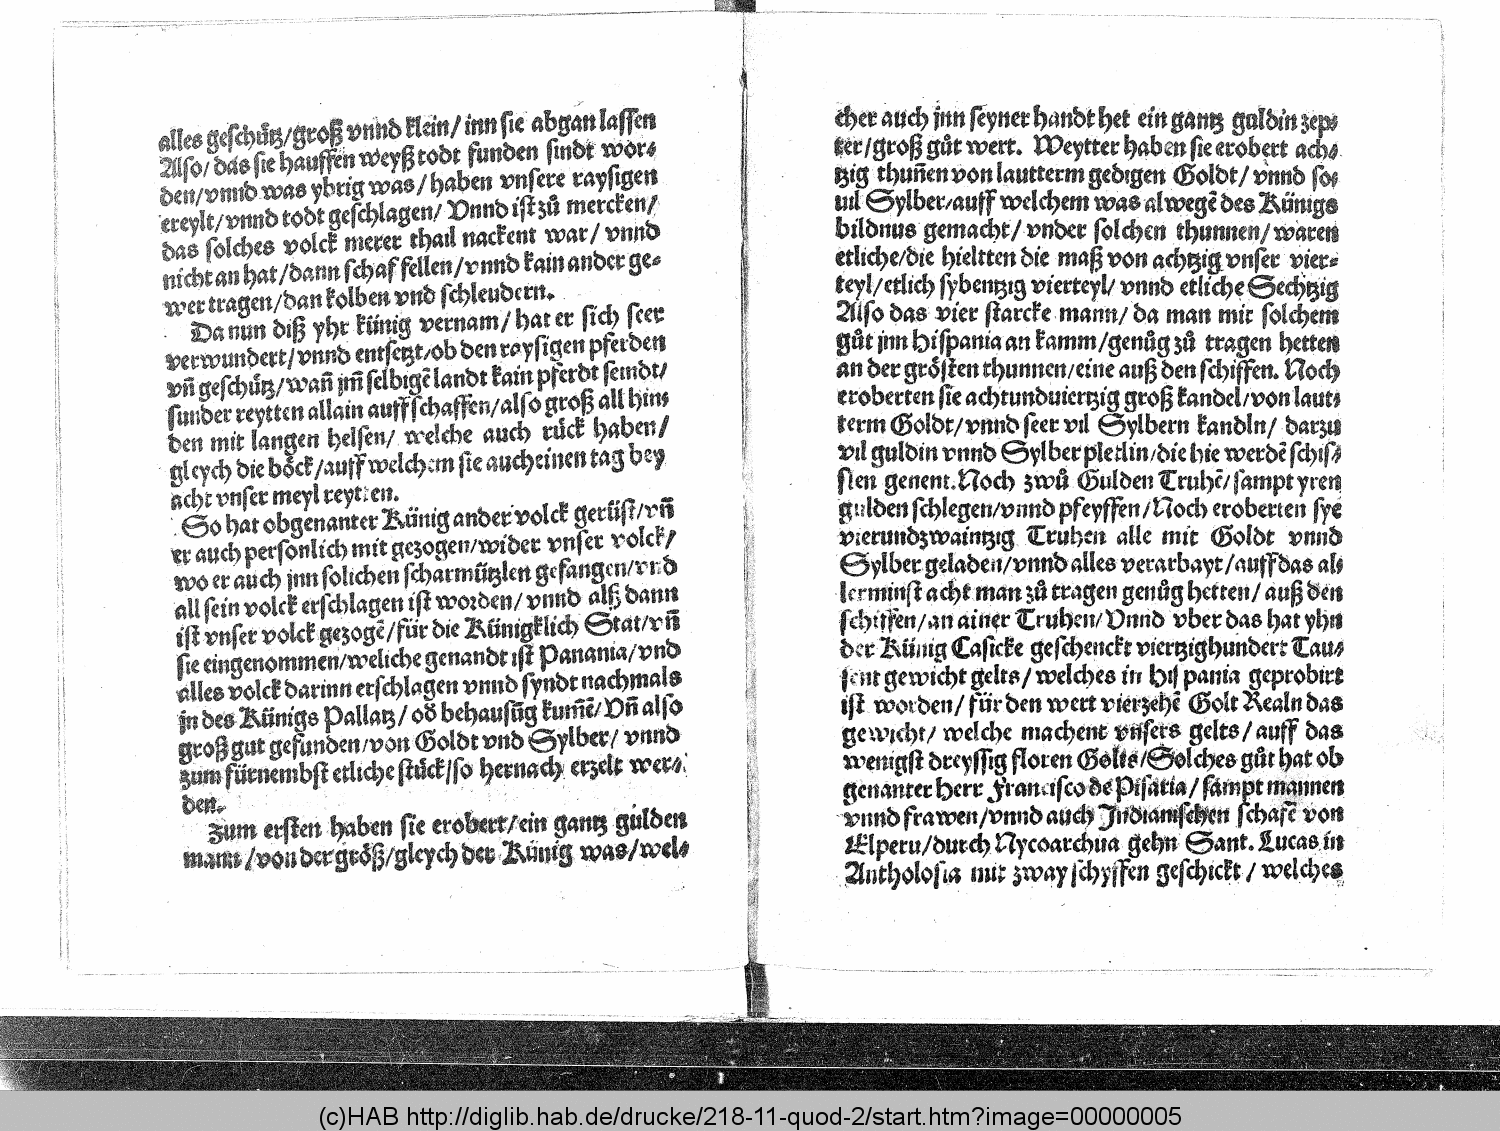 alles geschütz/groß vnnd klein/inn sie abgan lassen
Also/das sie hauffen weyß todt funden sindt wor⸗
den/vnnd was ybrig was/haben vnsere raysigen
ereylt/vnnd todt geschlagen/ Vnnd ist zů mercken/
das solches volck merer thail nackent war/ vnnd
nicht an hat/dann schaf fellen/vnnd kain ander ge⸗
wer tragen/dan kolben vnd schleudern.
Da nun diß yhr künig vernam/hat er sich seer
verwundert/vnnd entsetzt/ob den raysigen pferden
vñ geschütz/wañ jm̃ selbigẽ landt kain pferdt seindt/
sunder reytten allain auff schaffen/also groß all hin⸗
den mit langen helsen/ welche auch rück haben/
gleych die böck/auff welchem sie auch einen tag bey
acht vnser meyl reytten.
So hat obgenanter Künig ander volck gerüst/vñ
er auch personlich mit gezogen/wider vnser volck/
wo er auch jnn solichen scharmützlen gefangen/vnd
all sein volck erschlagen ist worden/vnnd alß dann
ist vnser volck gezogẽ/für die Künigklich Stat/vñ
sie eingenommen/weliche genandt ist Panania/vnd
alles volck darinn erschlagen vnnd syndt nachmals
jn des Künigs Pallatz/od behausũg kum̃ẽ/Vñ also
groß gut gefunden/von Goldt vnd Sylber/ vnnd
zum fürnembst etliche stück/so hernach erzelt wer⸗
den.
Zum ersten haben sie erobert/ein gantz gülden
mann/von der größ/gleych der Künig was/wel⸗
cher auch jnn seyner handt het ein gantz guldin zep⸗
ter/groß gůt wert. Weytter haben sie erobert ach⸗
tzig thuñen von lautterm gedigen Goldt/vnnd so⸗
uil Sylber/auff welchem was alwegẽ des Künigs
bildnus gemacht/vnder solchen thunnen/waren
etliche/die hieltten die maß von achtzig vnser vier⸗
teyl/etlich sybentzig vierteyl/vnnd etliche Sechtzig
Also das vier starcke mann/da man mit solchem
gůt jnn Hispania an kamm/genůg zů tragen hetten
an der grösten thunnen/eine auß den schiffen. Noch
eroberten sie achtunduiertzig groß kandel/von laut⸗
term Goldt/vnnd seer vil Sylbern kandln/ darzu
vil guldin vnnd Sylber pletlin/die hie werdẽ schis⸗
slen genent. Noch zwů Gulden Truhẽ/sampt yren
gulden schlegen/vnnd pfeyffen/Noch eroberten sye
vierundzwaintzig Truhen alle mit Goldt vnnd
Sylber geladen/vnnd alles verarbayt/auff das al⸗
lerminst acht man zů tragen genůg hetten/auß den
schiffen/an ainer Truhen/Vnnd vber das hat yhn
der Künig Casicke geschenckt viertzighundert Tau⸗
sent gewicht gelts/welches in Hispania geprobirt
ist worden/für den wert vierzehẽ Golt Realn das
gewicht/ welche machent vnsers gelts/auff das
wenigst dreyssig floren Gelts/Solches gůt hat ob
genanter Herr Francisco de Pisaria/sampt mannen
vnnd frawen/vnnd auch Indianischen schafẽ von
Elperu/durch Nycoarchua gehn Sant. Lucas in
Antholosia mit zway schyffen geschickt/ welches
(c)HAB http://diglib.hab.de/drucke/218-11-quod-2/start.htm?image=00000005